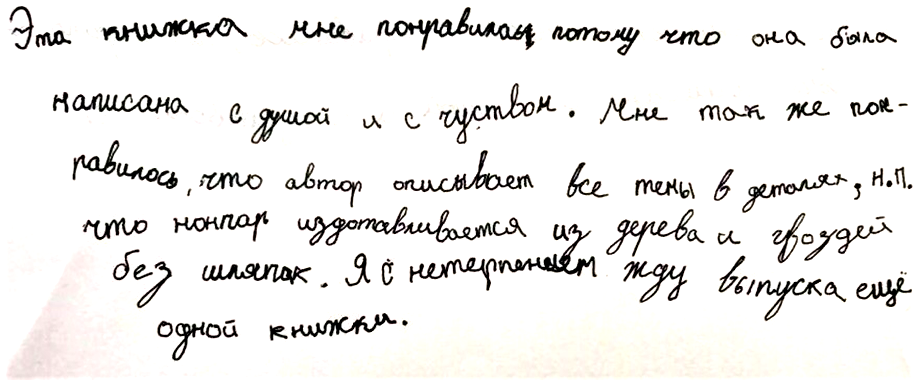 Эта книжка мне понравилась, потому что она была
написана с душой и с чуством. Мне так же пон-
равилось, что автор описывает все темы в деталях, н.п.
что нонпар издотавливается из дерева и гвоздей
без шляпок. Я с нетерпением жду выпуска ещё
одной книжки.